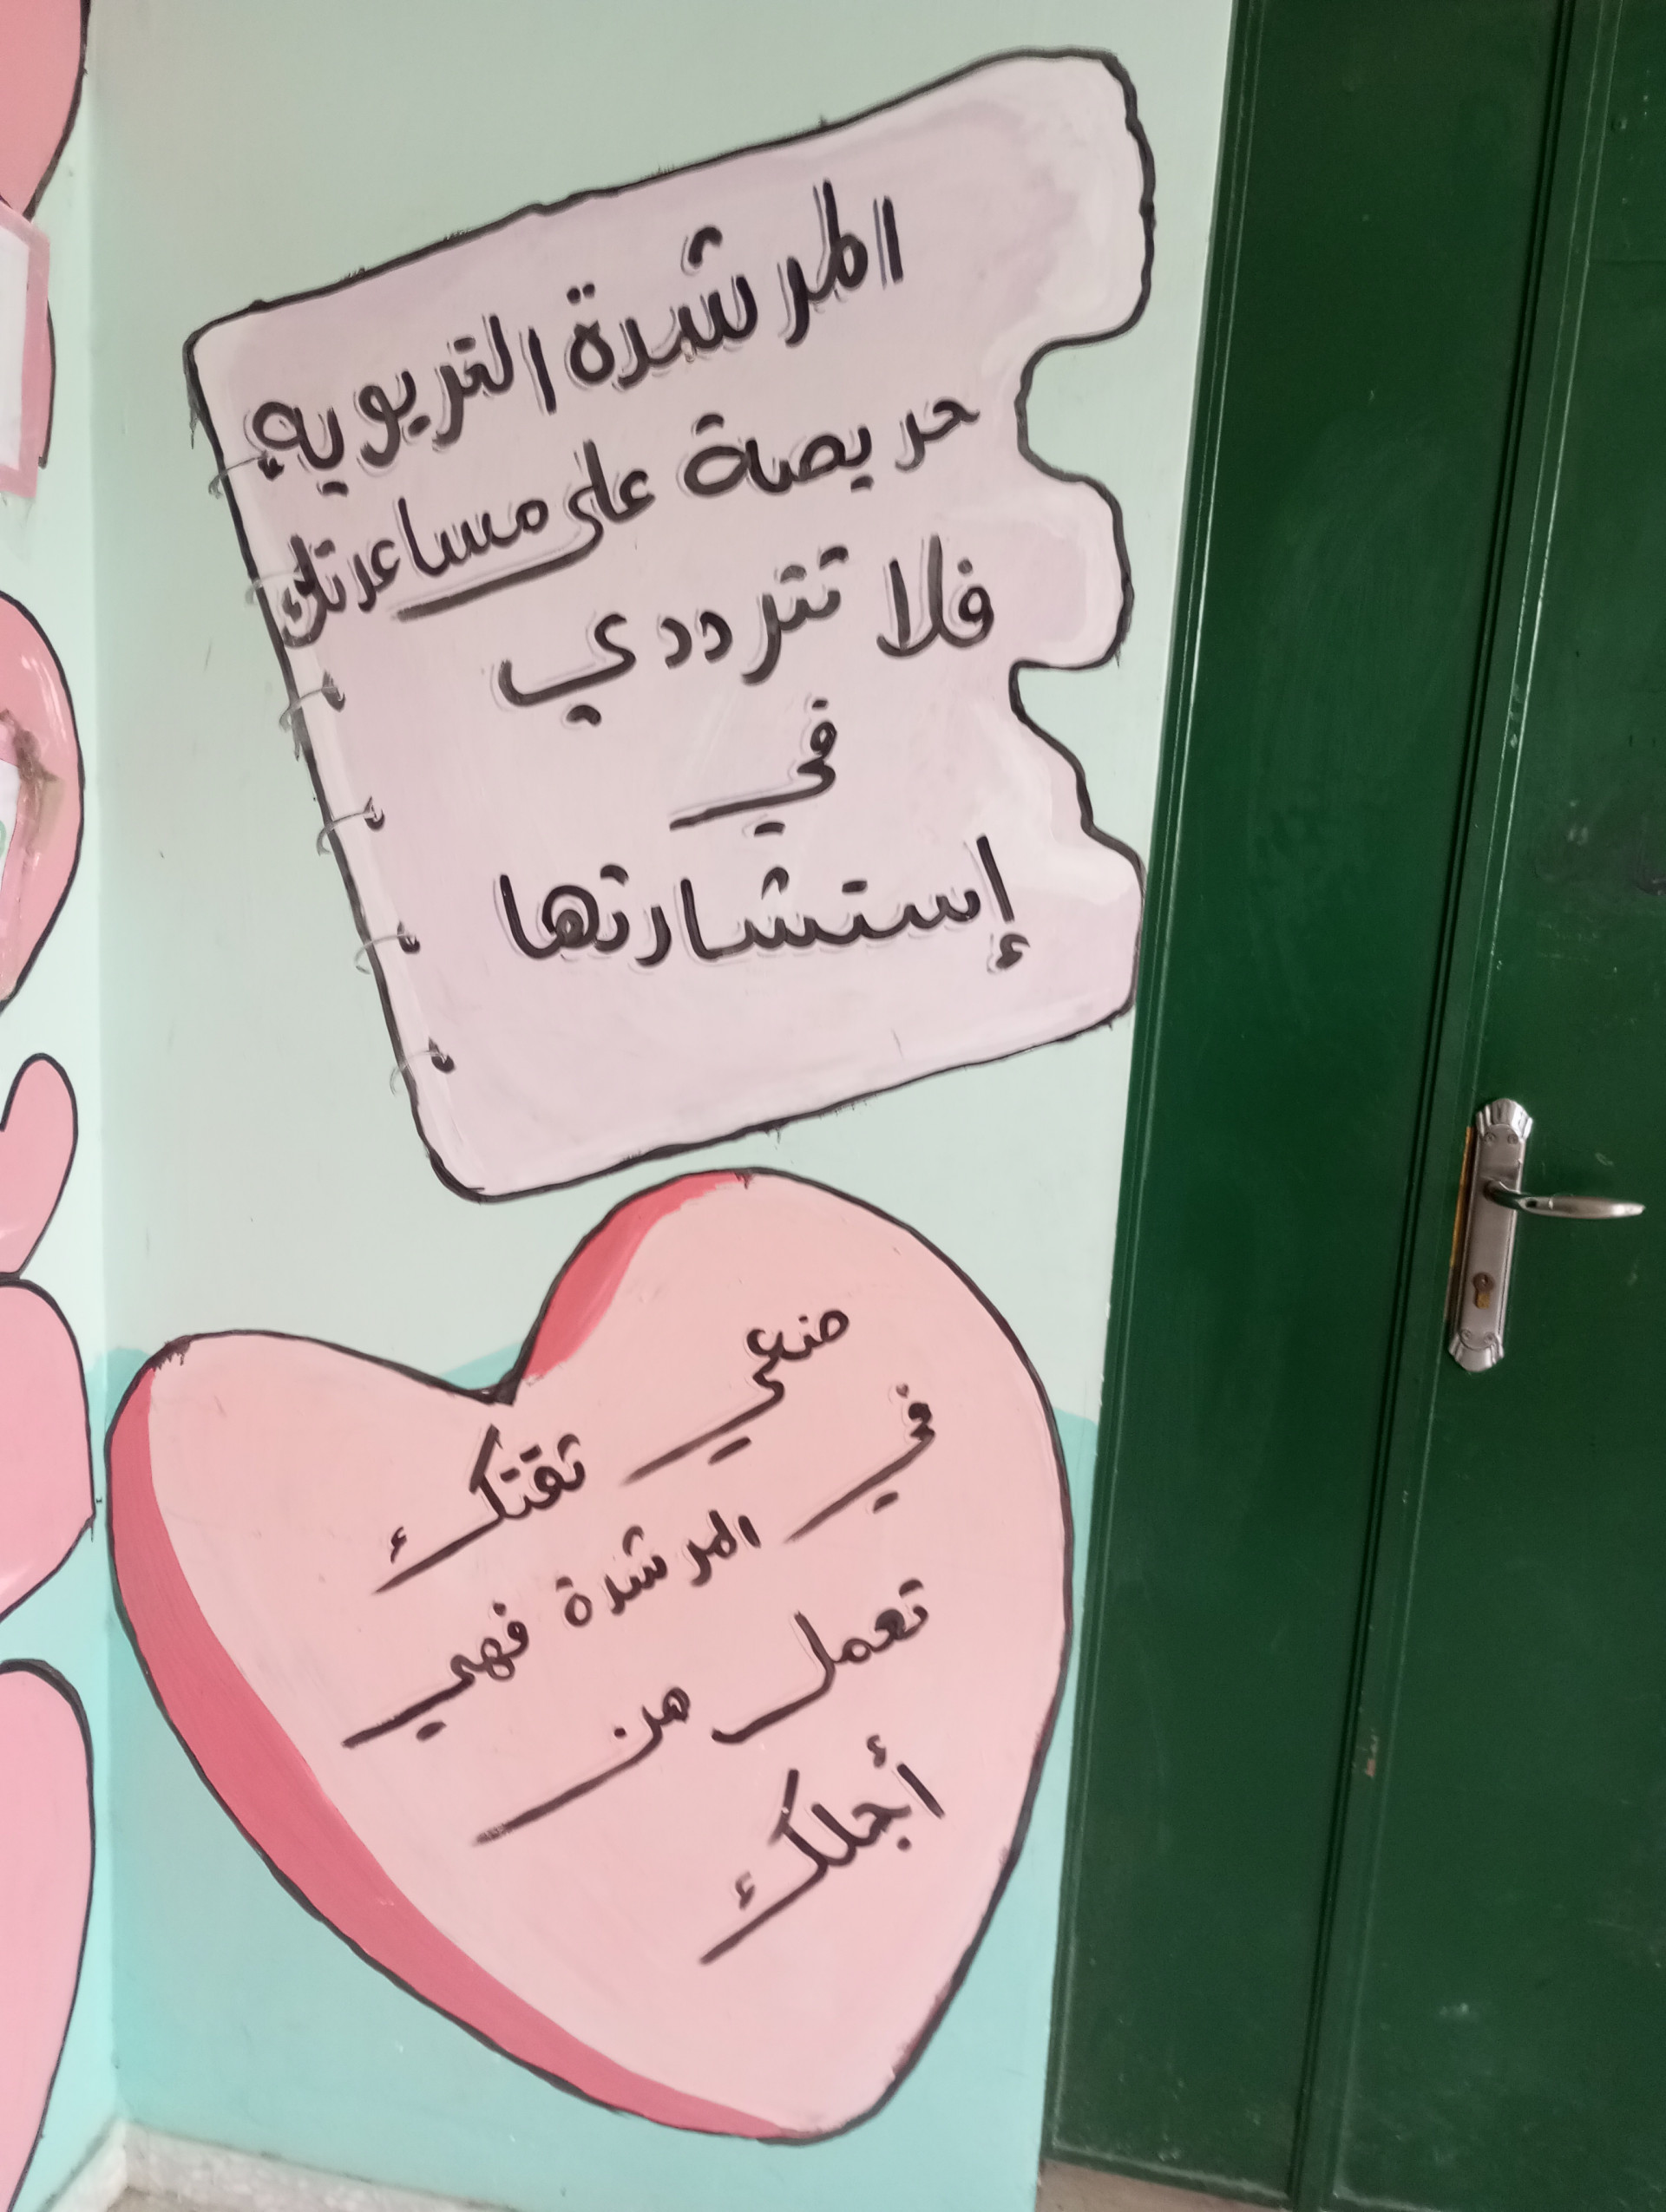 المرشدة التربوية
حريصة على مساعدتك
فلا تترددي
في
إستشارتها
ضعي ثقتك
في المرشدة فهي
تعمل من
أجلك